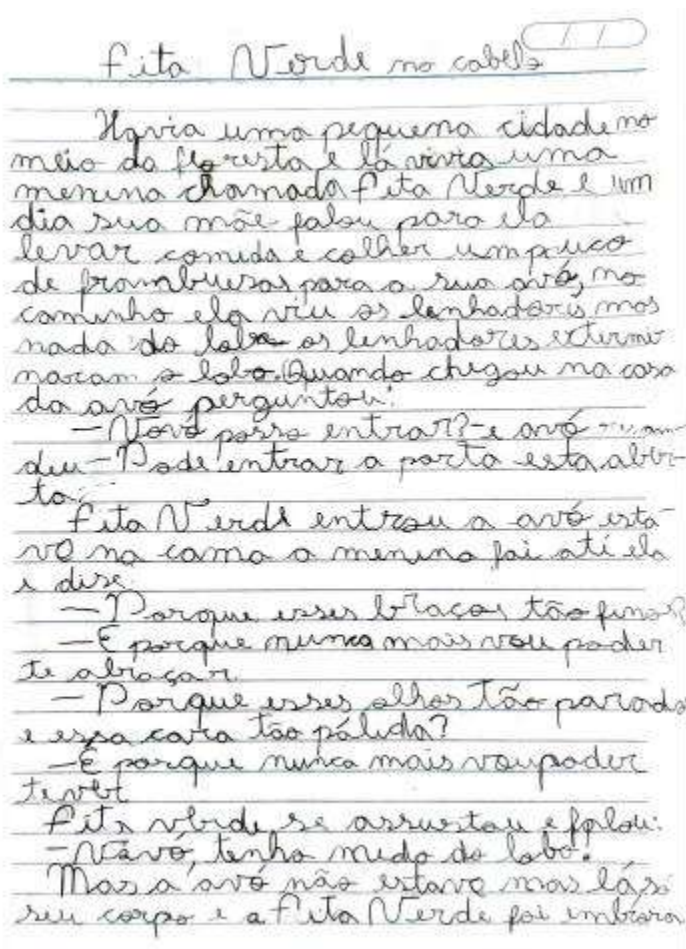 Fita Verde no cabelo
Havia uma pequena cidade no
meio da floresta e lá vivia uma
menina chamada Fita Verde e um
dia sua mãe falou para ela
levar comida e colher um pouco
de frambuesas para a sua avó, no
caminho ela viu os lenhadores, mas
nada do lobo os lenhadores extermi
naram o lobo. Quando chegou na casa
da avó perguntou:
— Vovó posso entrar? – e avó
deu – Pode entrar a porta esta aber-
ta.
Fita Verde entrou a avó esta-
va na cama a menina foi até ela
e dise:
— Porque esses braços tão finos?
— É porque nunca mais vou poder
te abraçar.
— Porque esses olhos tão parado
e essa cara tão pálida?
— É porque nunca mais vou poder
te ver
Fita verde se assustou e falou:
– Vovó, tenho medo do lobo!
Mas a avó não estava mas lá só
seu corpo e a Fita Verde foi embora